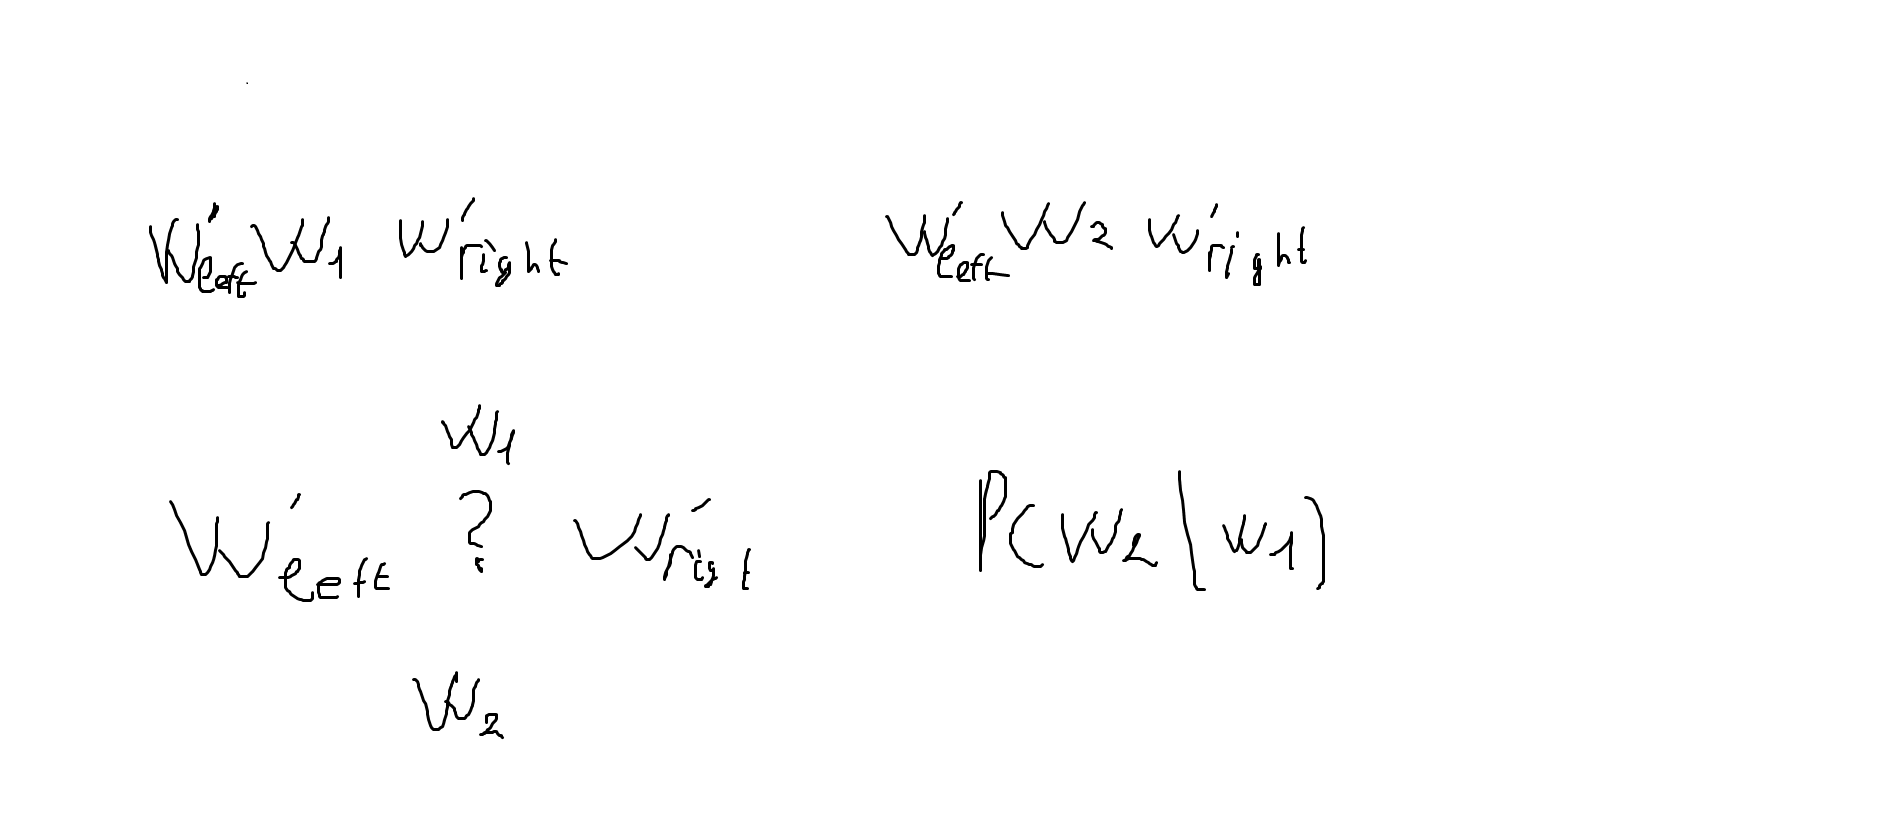 W'left W1 W'right W'left W2 W'right
W1
W'left ? W'rigt P(W2|W1)
W2